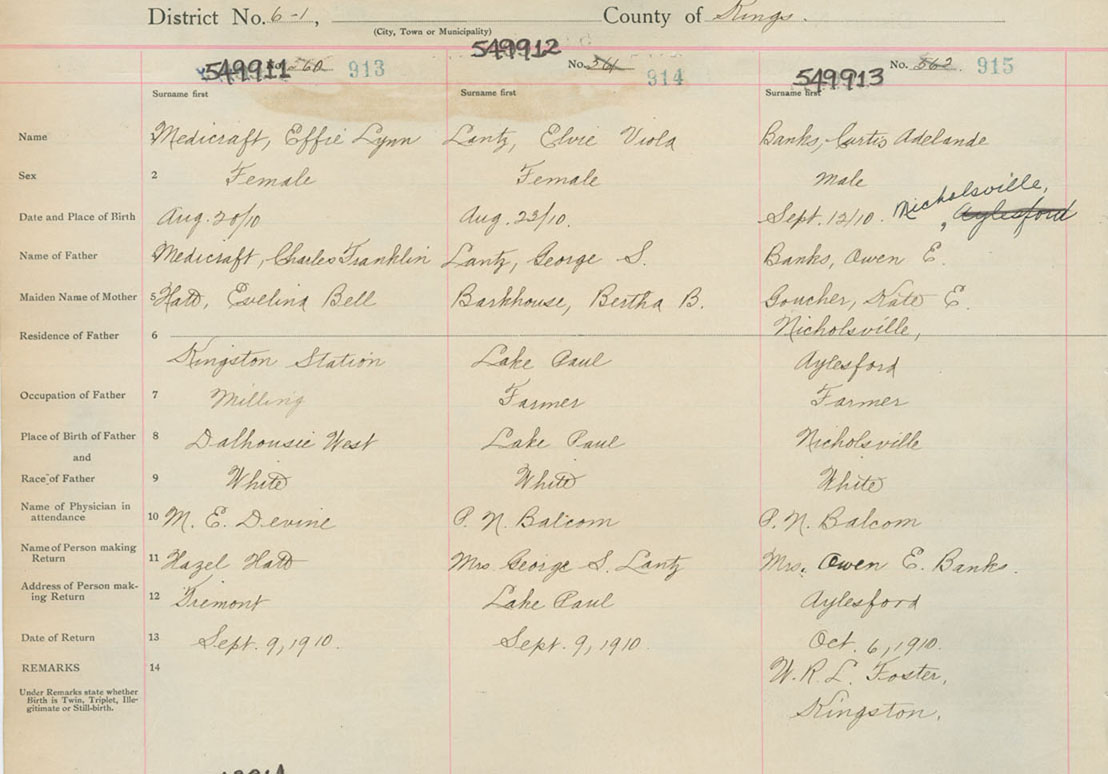 District No. 6-1, County of Kings.
(City, Town or Municipality)
549911 No. 560 913 549912 No. 561 914 549913 No. 562 915
Surname first Surname first Surname first
Name 1 Medicraft, Effie Lynn Lantz, Elvie Viola Banks, Curtis Adelande
Sex 2 Female Female Male
Nicholsville,
Date and Place of Birth Aug. 20/10 Aug. 22/10. Sept. 12/10. , Aylesford
Name of Father Medicraft, Charles Franklin Lantz, George S. Banks, Owen E.
Maiden Name of Mother 5 Hatt, Evelina Bell Barkhouse, Bertha B. Goucher, Kate E.
Residence of Father 6 Nicholsville,
Kingston Station Lake Paul Aylesford
Occupation of Father 7 Milling Farmer Farmer
Place of Birth of Father 8 Dalhousie West Lake Paul Nicholsville
and
Race of Father 9 White White White
Name of Physician in
attendance 10 M. E. Devine P. N. Balcom P. N. Balcom
Name of Person making
Return 11 Hazel Hatt Mrs. George S. Lantz Mrs. Owen E. Banks.
Address of Person mak-
ing Return 12 Tremont Lake Paul Aylesford
Date of Return 13 Sept. 9, 1910. Sept. 9, 1910. Oct. 6, 1910.
REMARKS 14 W. R. L. Foster,
Under Remarks state whether
Birth is Twin, Triplet, Ille-
gitimate or Still-birth. Kingston.